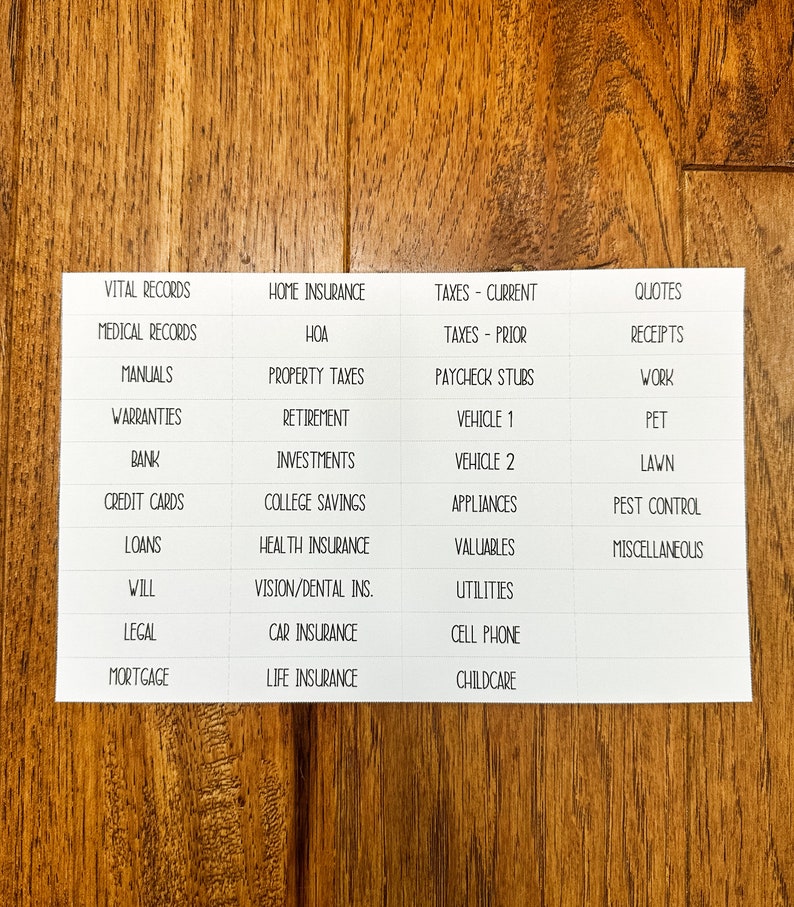 VITAL RECORDS HOME INSURANCE TAXES - CURRENT QUOTES
MEDICAL RECORDS HOA TAXES - PRIOR RECEIPTS
MANUALS PROPERTY TAXES PAYCHECK STUBS WORK
WARRANTIES RETIREMENT VEHICLE 1 PET
BANK INVESTMENTS VEHICLE 2 LAWN
CREDIT CARDS COLLEGE SAVINGS APPLIANCES PEST CONTROL
LOANS HEALTH INSURANCE VALUABLES MISCELLANEOUS
WILL VISION/DENTAL INS. UTILITIES
LEGAL CAR INSURANCE CELL PHONE
MORTGAGE LIFE INSURANCE CHILDCARE